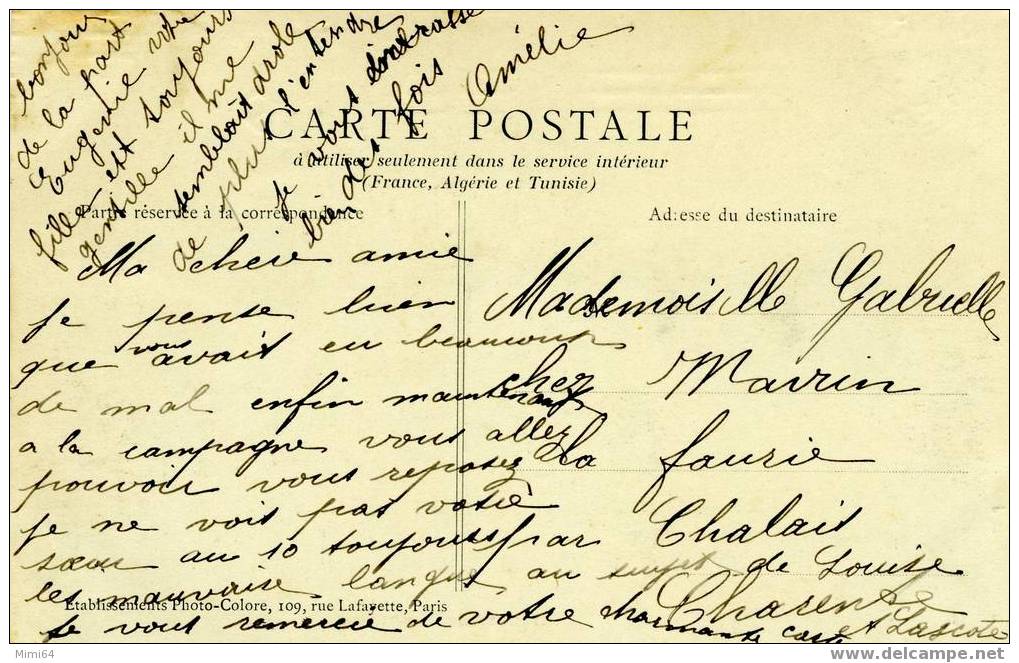 bonjour
de la part
Eugenie votre
fille est toujours
gentille il me
semblait drole
de plus l'entendre
je vous embrasse
bien des fois
Amélie
CARTE POSTALE
à utiliser seulement dans le service intérieur
(France, Algérie et Tunisie)
Partie réservée à la correspondance
Adresse du destinataire
Ma chere amie
je pense bien
que vous avait eu beaucoup
de mal enfin maintenant
a la campagne vous allez
pouvoir vous reposez
je ne voit pas votre
sœur au 10 toujours
les mauvaise langue au sujet de Louise
et Lascote
je vous remercie de votre charmante carte
Mademoiselle Gabrielle
chez Marrin
La faurie
par Chalais
Charente
Etablissements Photo-Colore, 109, rue Lafayette, Paris
Mimi64
delcampe.net